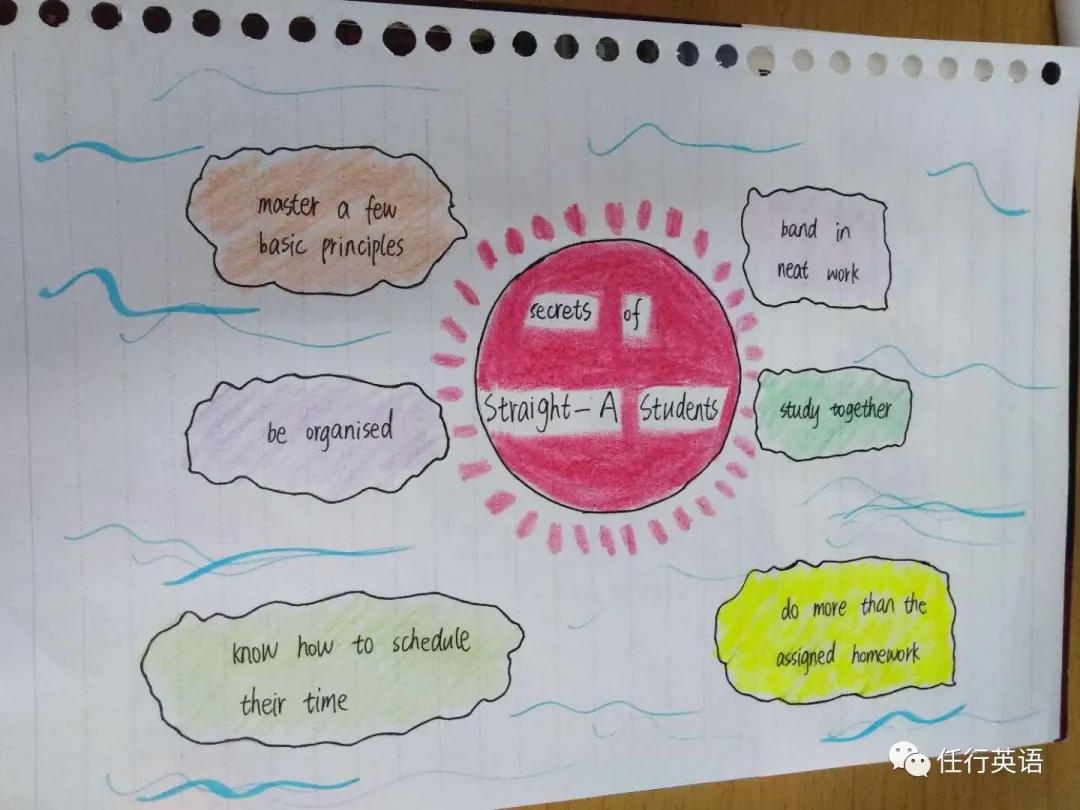 secrets of
Straight-A Students
master a few
basic principles
be organised
know how to schedule
their time
band in
neat work
study together
do more than the
assigned homework
任行英语